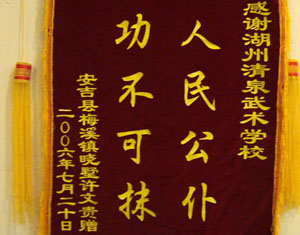 感谢湖州清泉武术学校
人民公仆
功不可抹
安吉县梅溪镇晓墅许文贵赠
二00六年七月二十日